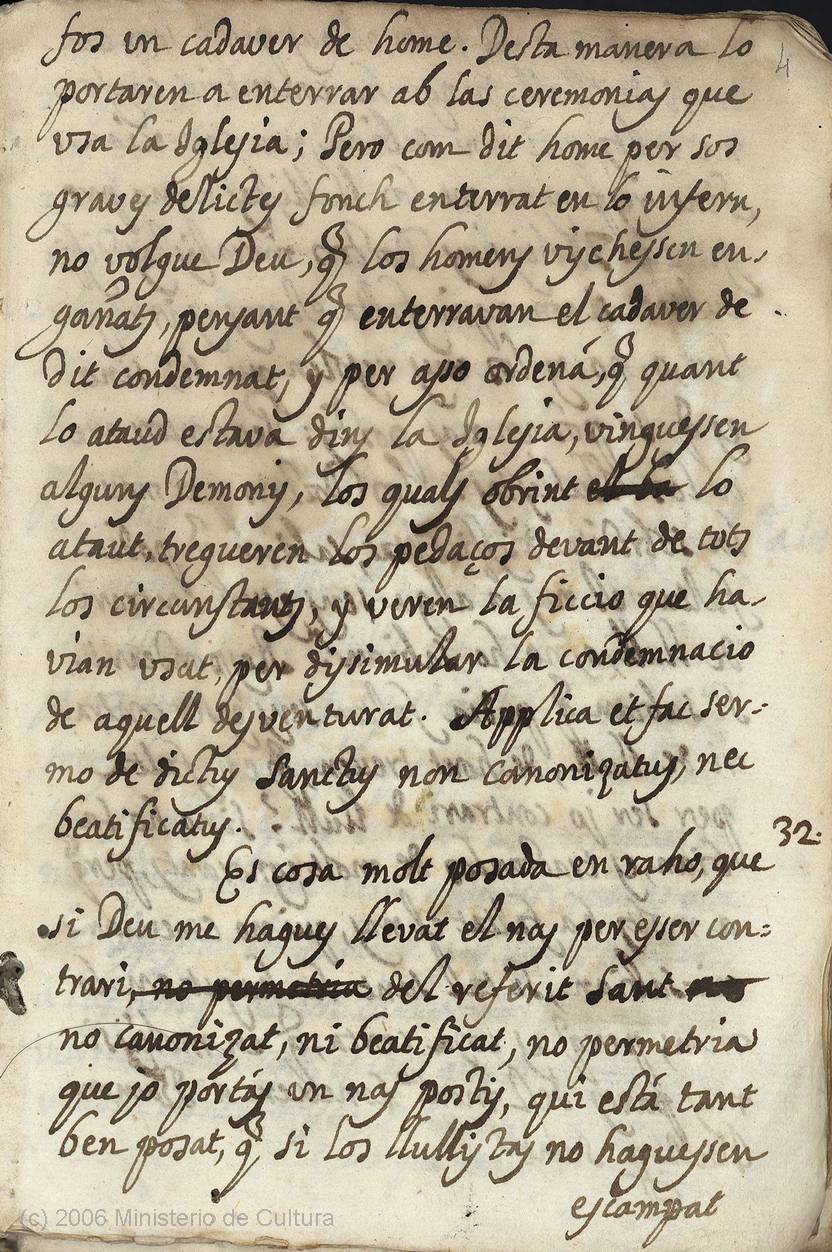 fos un cadaver de home. Desta manera lo
4
portaren a enterrar ab las ceremonias que
usa la Iglesia; Pero com dit home per sos
graves delictes fonch enterrat en lo infern,
no volgue Deu, q̃ los homens vischessen en-
gañats, pensant q̃ enterravan el cadaver de
dit condemnat, y per aso ordená, q̃ quant
lo ataud estava dins la Iglesia, vinguessen
alguns Demonis, los quals obrint el ba lo
ataut, tregueren los pedaços devant de tots
los circunstants, y veren la ficcio que ha-
vian usat, per dissimular la condemnacio
de aquell desventurat. Applica et fac ser-
mo de dictis Sanctis non canonizatis, nec
beatificatis.
32.
Es cosa molt posada en raho, que
si Deu me hagues llevat el nas per esser con-
trari, no permetria del referit Sant no
no canonizat, ni beatificat, no permetria
que jo portás un nas postis, qui está tant
ben posat, q̃ si los llullistas no haguessen
escampat
(c) 2006 Ministerio de Cultura